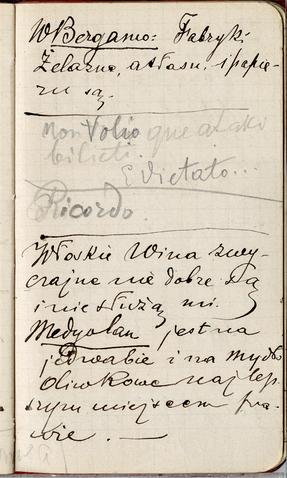 W Bergamo: Fabryk:
Żelazne, atłasu, i papie-
ru są
Non Volio que ataki
bilieti.
E vietato...
Ricordo.
Włoskie Wina zwy-
czajne nie dobre są
i nie służą mi.
Medyolan jest na
jedwabie i na mydło
oliwkowe najlep-
szym miejscem pra-
wie. —